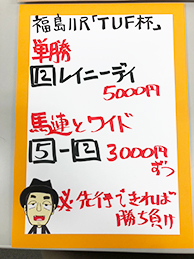 福島11R「TUF杯」
単勝
12レイニーデイ
5000円
馬連とワイド
5-12 3000円
ずつ
※先行できれば
勝ち負け